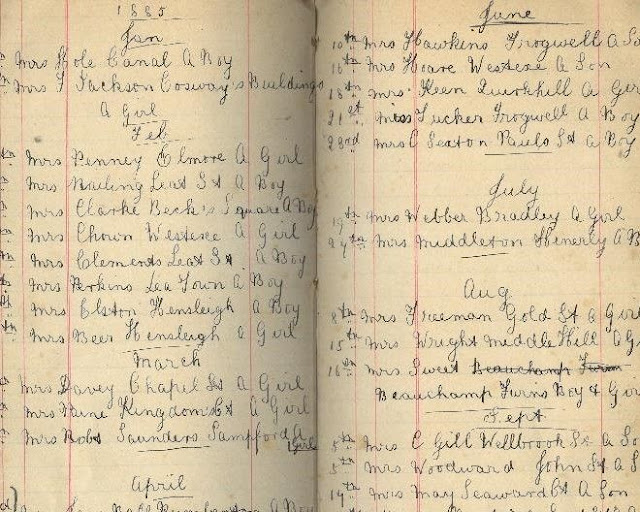 1885
Jan
Mrs Hole Canal A Boy
Mrs J Jackson Cosway's Buildings
A Girl
Feb
Mrs Penney Elmore A Girl
Mrs Railing Leat St A Boy
Mrs Clarke Beck's Square A Boy
Mrs Chown Westexe A Girl
Mrs Clements Leat St A Boy
Mrs Perkins Lea Town A Boy
Mrs Elston Hensleigh A Boy
Mrs Beer Hensleigh A Girl
March
Mrs Davey Chapel St A Girl
Mrs Kingdoms Ct A Girl
Mrs Saunders Sampford A
Girl
April
A Boy
June
10th Mrs Hawkins Frogwell A So
16th Mrs Hoare Westexe A Son
18th Mrs Keen Quirkhill A Gir
21st Miss Tucker Frogwell A Boy
23rd Mrs C Seaton Pauls St A Boy
July
19th Mrs Webber Bradley A Girl
24th Mrs Middleton A B
Aug
8th Mrs Freeman Gold St A Girl
15th Mrs Wright Middle Hill A G
16th Mrs Sweet Beauchamp
Beauchamp Twins Boy & Gir
Sept
5th Mrs C Gill Wellbrook St A So
5th Mrs Woodward John St A S
14th Mrs May Seaward Ct A Son